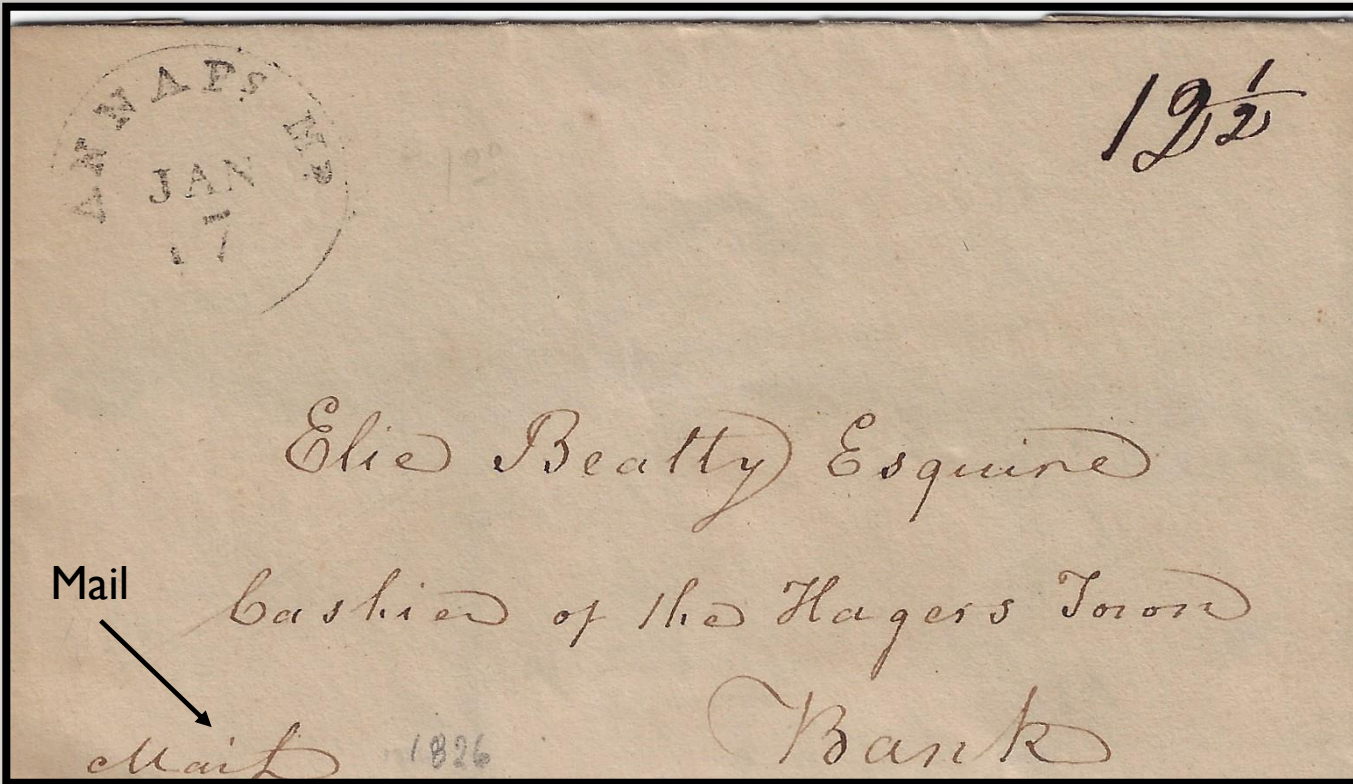 ANNAPS MD
JAN
17
12 1/2
Elie Beatty Esquire
Cashier of the Hagers Town
Bank
Mail
Mail
1826